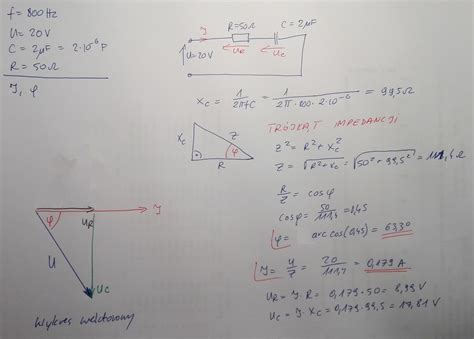 f = 800Hz
U = 20V
C = 2μF = 2·10⁻⁶ F
R = 50Ω
I, φ
I R=50Ω C = 2μF
U=20V U_R U_C
X_C = 1/(2πfC) = 1/(2π·800·2·10⁻⁶) = 99,5Ω
TRÓJKĄT IMPEDANCJI
X_C Z φ R
Z² = R² + X_C²
Z = √(R² + X_C) = √(50² + 99,5²) = 111,4 Ω
R/Z = cosφ
cosφ = 50/111,4 = 0,45
φ = arc cos(0,45) = 63,30
I = U/Z = 20/111,4 = 0,179 A
U_R = I·R = 0,179·50 = 8,99V
U_C = I·X_C = 0,179·99,5 = 17,81V
φ I
U_R
U
U_C
Wykres wektorowy